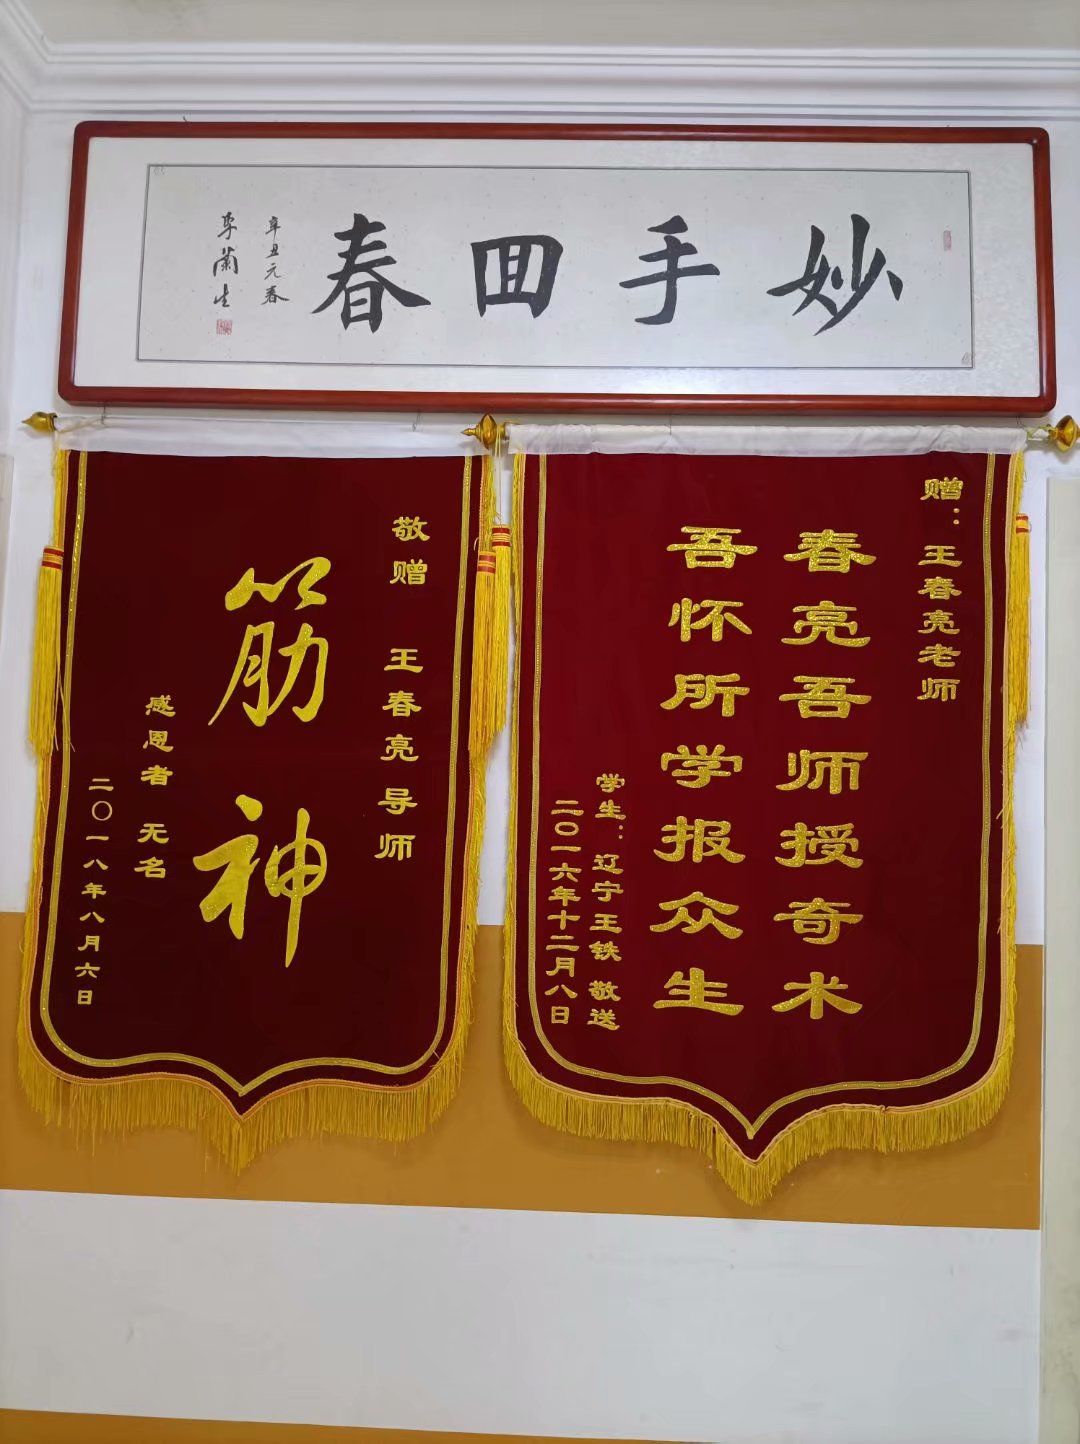 妙手回春
辛丑元春
李兰生
赠：王春亮老师
春亮吾师授奇术
吾怀所学报众生
学生：辽宁王铁 敬送
二〇一六年十二月八日
敬赠 王春亮导师
筋神
感恩者 无名
二〇一八年八月六日